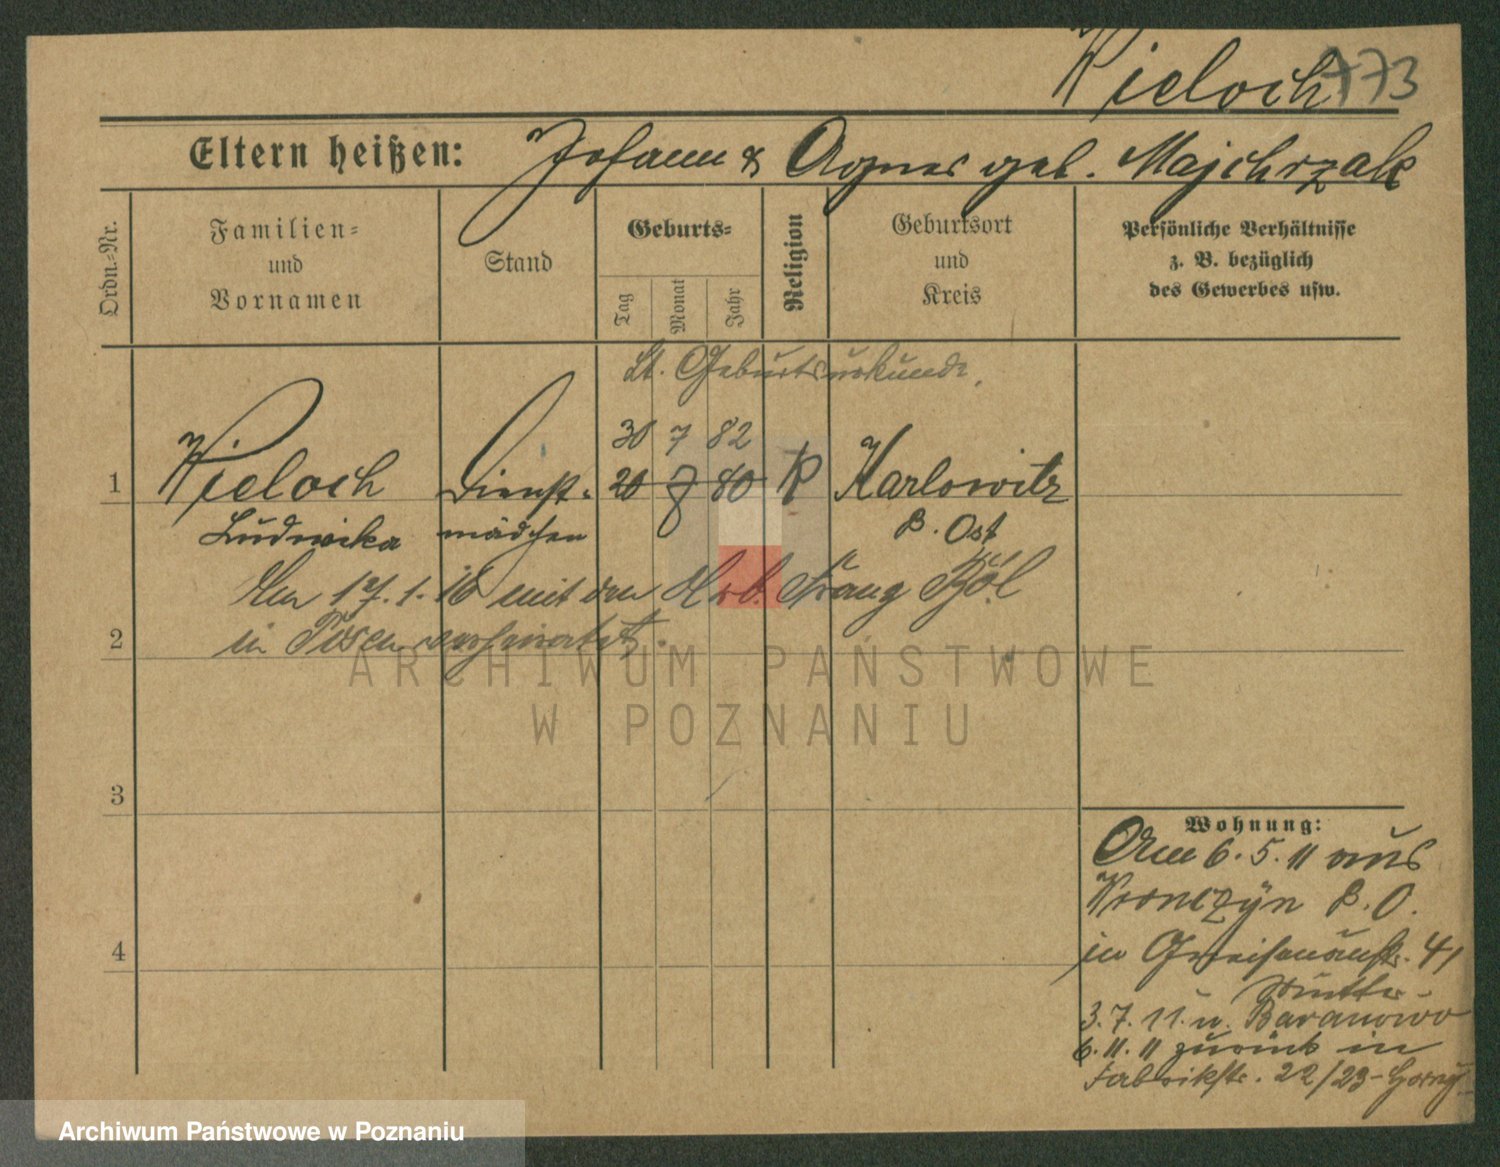 Wieloch 773
Eltern heißen: Johann & Agnes geb. Majchrzak
Ordn.-Nr.
Familien-
und
Vornamen
Stand
Geburts-
Tag
Monat
Jahr
Religion
Geburtsort
und
Kreis
Persönliche Verhältnisse
z. B. bezüglich
des Gewerbes usw.
Lt. Geburtsurkunde.
30 7 82
1 Wieloch Dienst- 20 7 80 K Karlowitz
Ludwika mädchen P. Ost
Am 17.1.16 mit dem Arb.
2 in Posen verheiratet.
ARCHIWUM PAŃSTWOWE
W POZNANIU
3
4
Wohnung:
Am 6.5.11 aus
Wronczyn P. O.
in Gneisenaustr. 41
3.7.11. n. Baranowo
6.11.11 zurück in
Fabrikstr. 22/23-
Archiwum Państwowe w Poznaniu